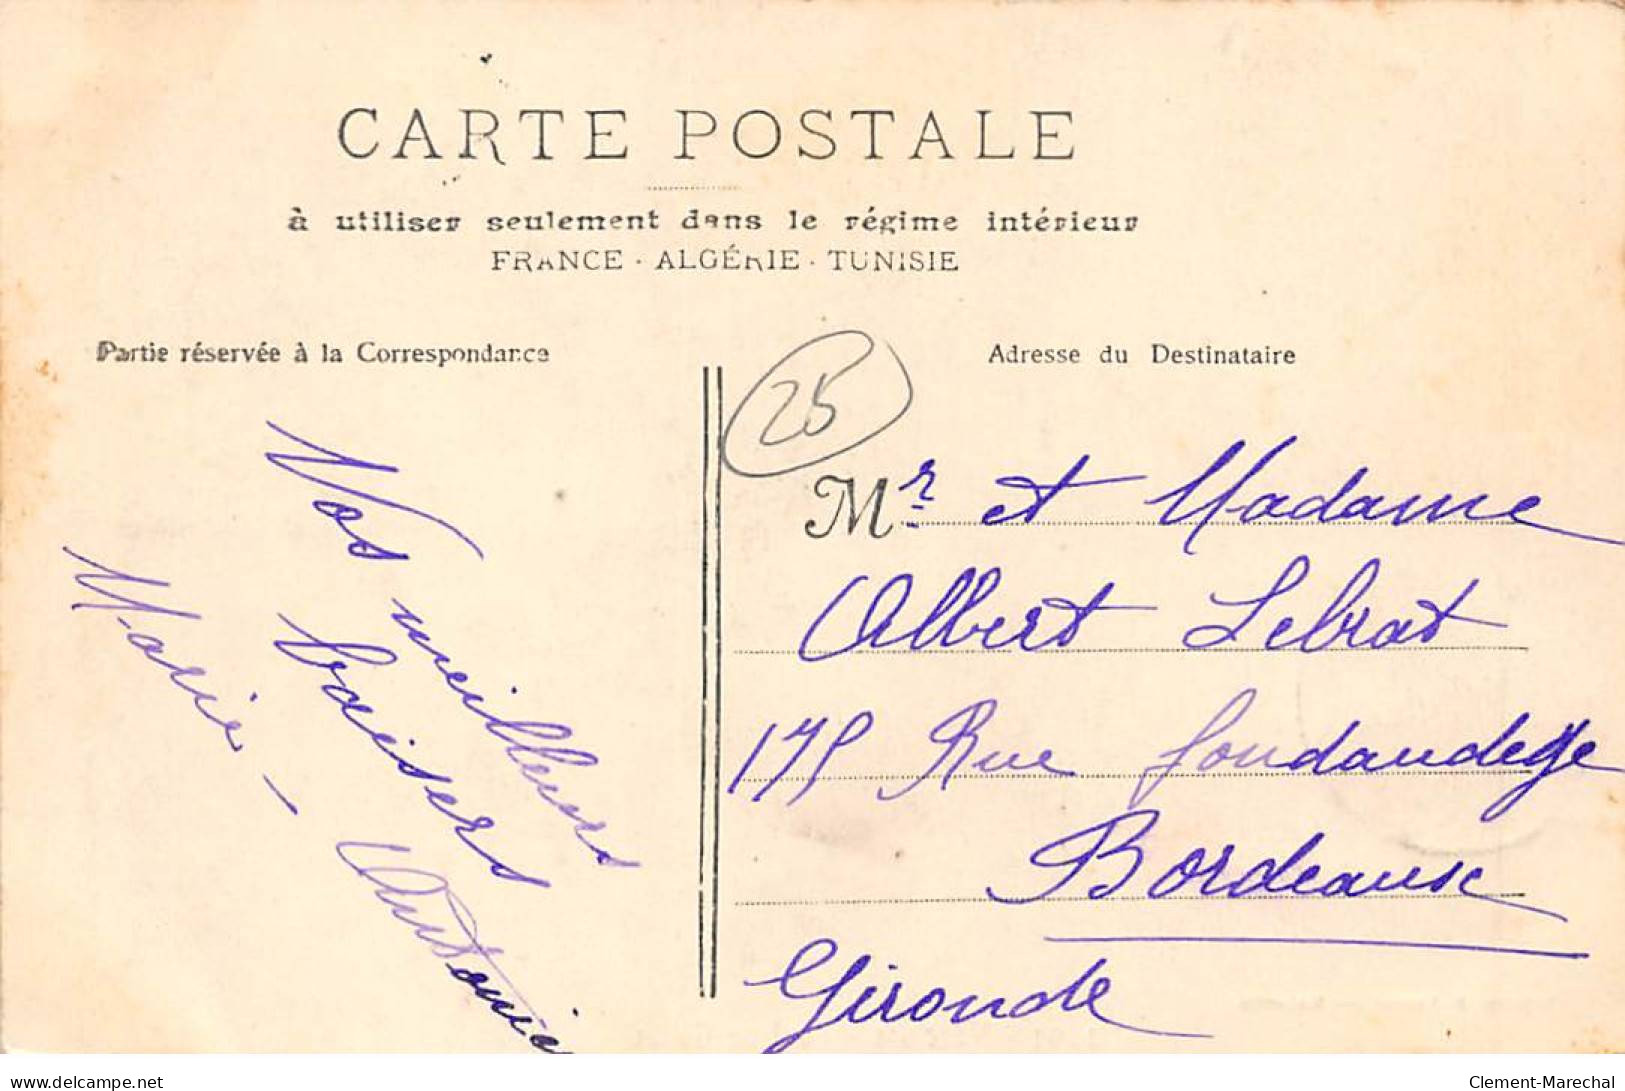 CARTE POSTALE
à utiliser seulement dans le régime intérieur
FRANCE · ALGÉRIE · TUNISIE
Partie réservée à la Correspondance
Adresse du Destinataire
25
Nos meilleurs
baisers
Marie - Antonie
Mr et Madame
Albert Lebrat
175 Rue fondaudege
Bordeaux
Gironde
delcampe.net
Clement-Marechal